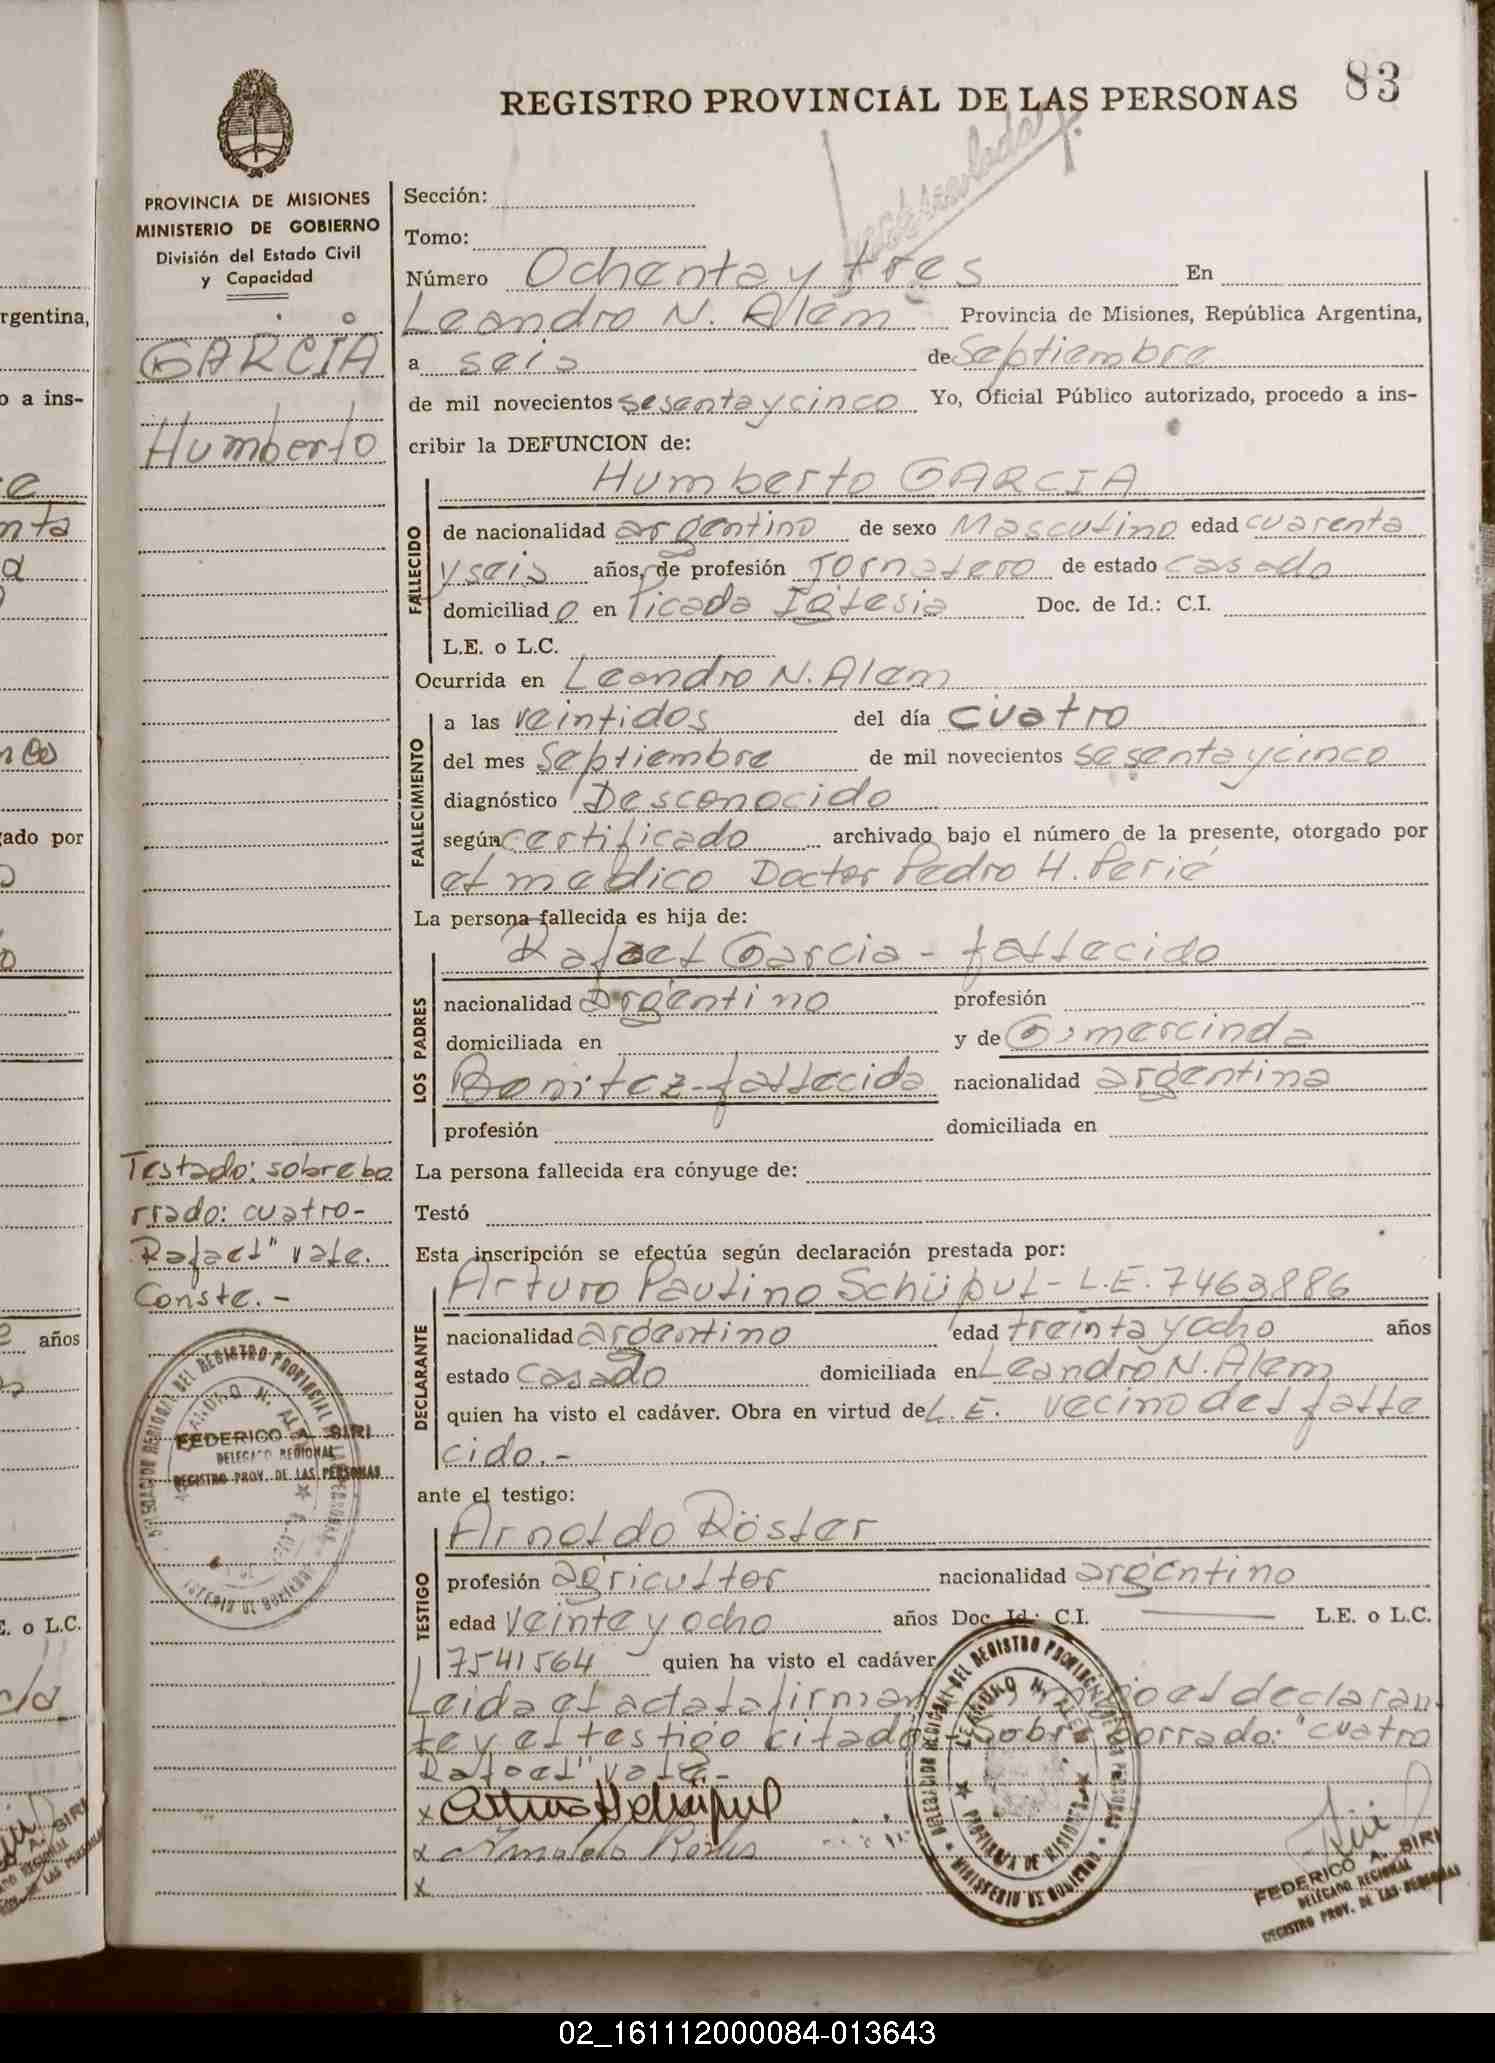 REGISTRO PROVINCIAL DE LAS PERSONAS
83
PROVINCIA DE MISIONES
MINISTERIO DE GOBIERNO
División del Estado Civil
y Capacidad
GARCIA
Humberto
Sección:
Tomo:
Número Ochenta y tres En
Leandro N. Alem Provincia de Misiones, República Argentina,
a seis de Septiembre
de mil novecientos sesenta y cinco Yo, Oficial Público autorizado, procedo a ins-
cribir la DEFUNCION de:
Humberto GARCIA
FALLECIDO
de nacionalidad argentino de sexo Masculino edad cuarenta
y seis años, de profesión Jornalero de estado casado
domiciliado en Picada Iglesia Doc. de Id.: C.I.
L.E. o L.C.
Ocurrida en Leandro N. Alem
FALLECIMIENTO
a las veintidos del día cuatro
del mes Septiembre de mil novecientos sesenta y cinco
diagnóstico Desconocido
según certificado archivado bajo el número de la presente, otorgado por
el medico Doctor Pedro H. Perié
La persona fallecida es hija de:
Rafael Garcia - fallecido
LOS PADRES
nacionalidad argentino profesión
domiciliada en y de Gumercinda
Benitez - fallecida nacionalidad argentina
profesión domiciliada en
La persona fallecida era cónyuge de:
Testó
Esta inscripción se efectúa según declaración prestada por:
Arturo Paulino Schüpul - L.E. 7463886
DECLARANTE
nacionalidad argentino edad treinta y ocho años
estado casado domiciliada en Leandro N. Alem
quien ha visto el cadáver. Obra en virtud de L.E. vecino del falle
cido.-
ante el testigo:
Arnoldo Röster
TESTIGO
profesión agricultor nacionalidad argentino
edad veinte y ocho años Doc. Id.: C.I. L.E. o L.C.
7541564 quien ha visto el cadáver
Leida el acta la firman el declaran-
te y el testigo citado - Sobre borrado: "cuatro
Rafael" vale.-
x
x
x
Testado: sobrebo
rrado: cuatro-
Rafael" vale.
Conste.-
FEDERICO A. SIRI
DELEGADO REGIONAL
REGISTRO PROV. DE LAS PERSONAS
DELEGACION REGIONAL DEL REGISTRO PROVINCIAL DE LAS PERSONAS
LEANDRO N. ALEM
PROVINCIA DE MISIONES
MINISTERIO DE GOBIERNO
FEDERICO A. SIRI
DELEGADO REGIONAL
REGISTRO PROV. DE LAS PERSONAS
rgentina,
o a ins-
nta
ado por
años
E. o L.C.
02_161112000084-013643